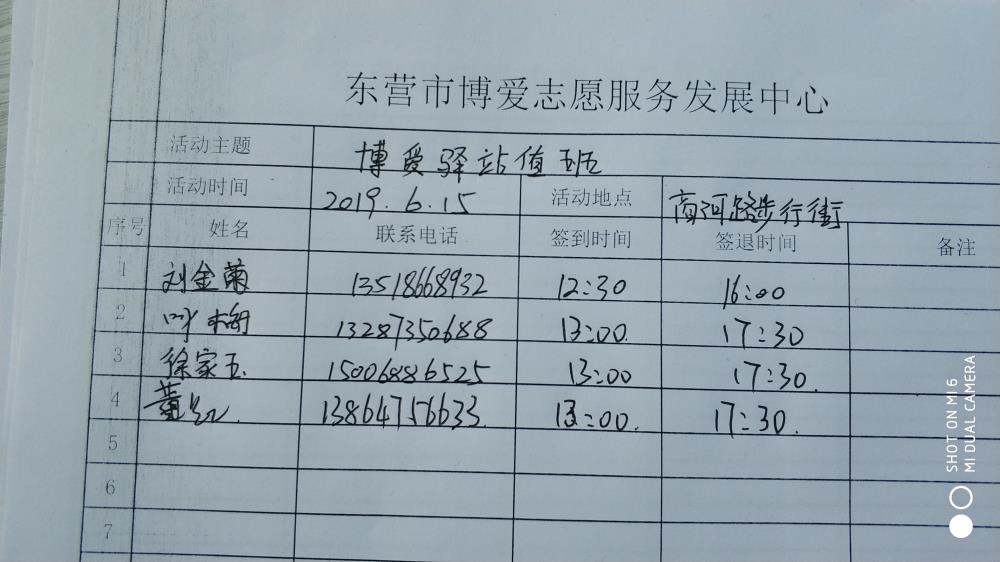 东营市博爱志愿服务发展中心
活动主题 博爱驿站值班
活动时间 2019.6.15 活动地点 商河路步行街
序号 姓名 联系电话 签到时间 签退时间 备注
1 刘金菊 13518668932 12:30 16:00
2 叶梅 13287350688 13:00 17:30
3 徐家玉 15006886525 13:00 17:30.
4 董红. 13864756633 13:00. 17:30.
5
6
7
SHOT ON MI 6
MI DUAL CAMERA